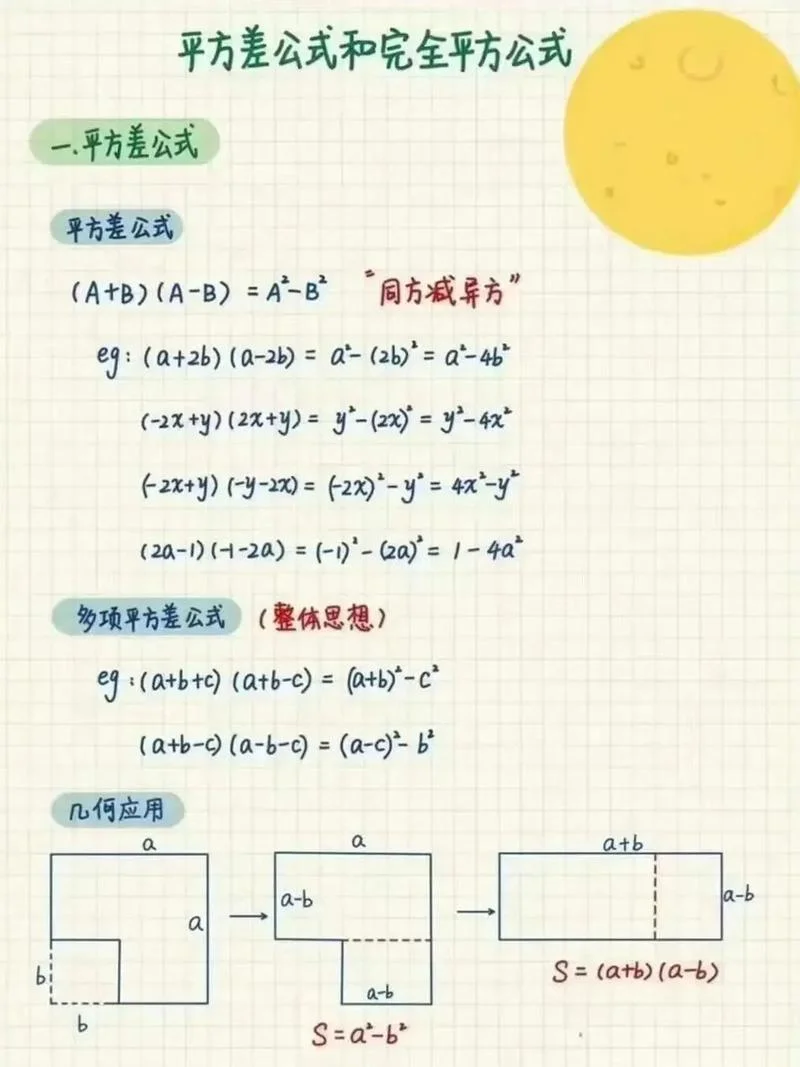 平方差公式和完全平方公式
一.平方差公式
平方差公式
(A+B)(A-B) = A²-B² "同方减异方"
eg: (a+2b)(a-2b) = a²-(2b)² = a²-4b²
(-2x+y)(2x+y) = y²-(2x)² = y²-4x²
(-2x+y)(-y-2x) = (-2x)²-y² = 4x²-y²
(2a-1)(-1-2a) = (-1)²-(2a)² = 1-4a²
多项平方差公式 (整体思想)
eg: (a+b+c)(a+b-c) = (a+b)²-c²
(a+b-c)(a-b-c) = (a-c)²-b²
几何应用
a
a
b
b
a
a-b
a-b
S=a²-b²
a+b
a-b
S=(a+b)(a-b)